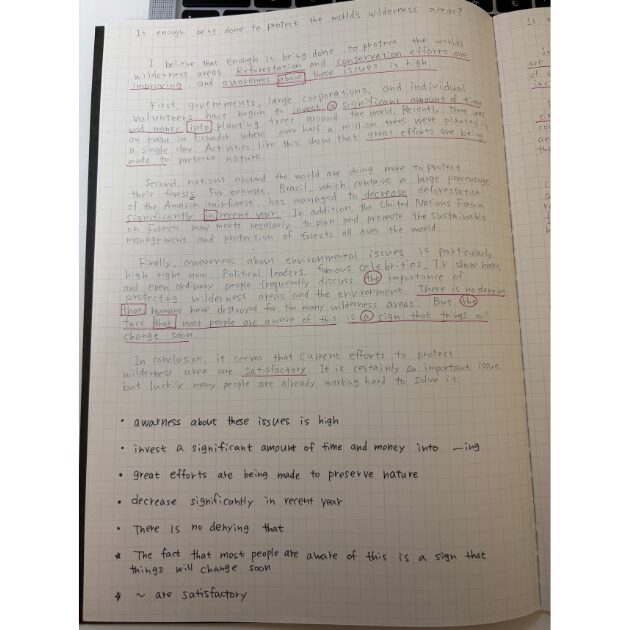 Is enough being done to protect the world's wilderness areas?
I believe that enough is being done to protect the world's
wilderness areas. Reforestation and conservation efforts are
improving, and awareness about these issues is high.
First, governments, large corporations, and individual
volunteers have begun to invest a significant amount of time
and money into planting trees around the world. Recently, there was
an event in Ecuador where over half a million trees were planted in
a single day. Activities like this show that great efforts are being
made to preserve nature.
Second, nations around the world are doing more to protect
their forests. For example, Brazil, which contains a large percentage
of the Amazon rainforest, has managed to decrease deforestation
significantly in recent year. In addition, the United Nations Forum
on Forests now meets regularly to plan and promote the sustainable
management and protection of forests all over the world.
Finally, awareness about environmental issues is particularly
high right now. Political leaders, famous celebrities, TV show hosts
and even ordinary people frequently discuss the importance of
protecting wilderness areas and the environment. There is no denying
that humans have destroyed far too many wilderness areas. But the
fact that most people are aware of this is a sign that things will
change soon
In conclusion, it seems that current efforts to protect
wilderness area are satisfactory. It is certainly an important issue,
but luckily many people are already working hard to solve it.
• awarness about these issues is high
• invest a significant amount of time and money into —ing
• great efforts are being made to preserve nature
• decrease significantly in recent year
• There is no denying that
* The fact that most people are aware of this is a sign that
things will change soon
* ~ are satisfactory